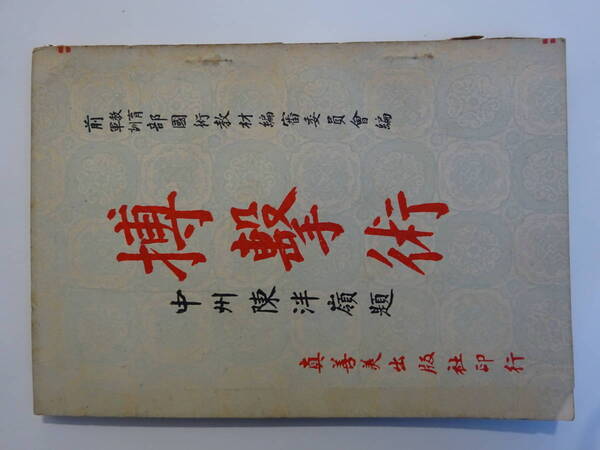 前教育軍訓部國術教材編審委員會編
搏擊術
中州陳泮嶺題
真善美出版社印行